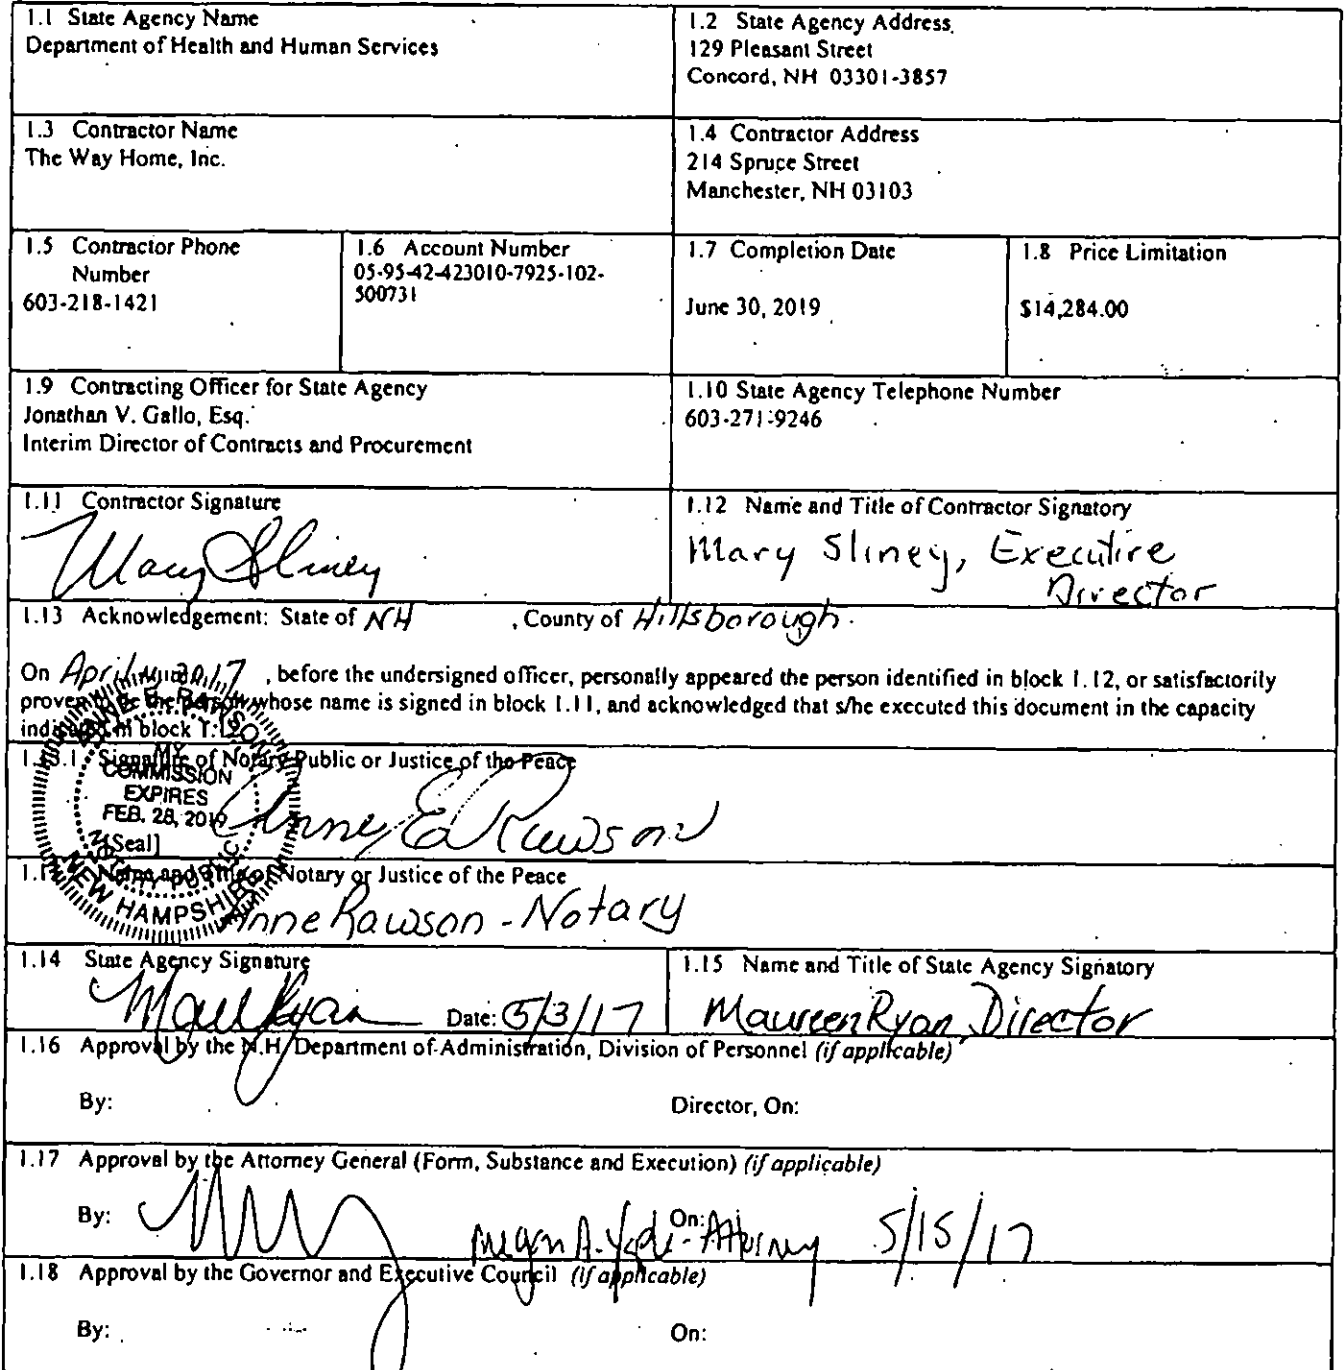 1.1 State Agency Name
Department of Health and Human Services
1.2 State Agency Address
129 Pleasant Street
Concord, NH 03301-3857
1.3 Contractor Name
The Way Home, Inc.
1.4 Contractor Address
214 Spruce Street
Manchester, NH 03103
1.5 Contractor Phone
Number
603-218-1421
1.6 Account Number
05-95-42-423010-7925-102-
500731
1.7 Completion Date
June 30, 2019
1.8 Price Limitation
$14,284.00
1.9 Contracting Officer for State Agency
Jonathan V. Gallo, Esq.
Interim Director of Contracts and Procurement
1.10 State Agency Telephone Number
603-271-9246
1.11 Contractor Signature
Mary Sliney
1.12 Name and Title of Contractor Signatory
Mary Sliney, Executive
Director
1.13 Acknowledgement: State of NH , County of Hillsborough.
On April 2017 , before the undersigned officer, personally appeared the person identified in block 1.12, or satisfactorily
proven to be the person whose name is signed in block 1.11, and acknowledged that s/he executed this document in the capacity
indicated in block 1.12.
1.13.1 Signature of Notary Public or Justice of the Peace
ANNE E. RAWSON
MY
COMMISSION
EXPIRES
FEB. 28, 2019
NOTARY PUBLIC
NEW HAMPSHIRE
[Seal]
Anne E Rawson
Name and Title of Notary or Justice of the Peace
Anne Rawson - Notary
1.14 State Agency Signature
Date: 5/3/17
1.15 Name and Title of State Agency Signatory
Maureen Ryan, Director
1.16 Approval by the N.H. Department of Administration, Division of Personnel (if applicable)
By: Director, On:
1.17 Approval by the Attorney General (Form, Substance and Execution) (if applicable)
By: On: Megan A. - Attorney 5/15/17
1.18 Approval by the Governor and Executive Council (if applicable)
By: On: